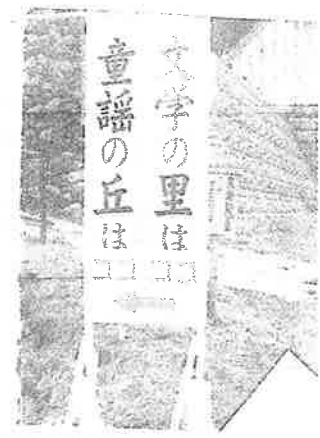 文学の里はココ
童謡の丘はココ